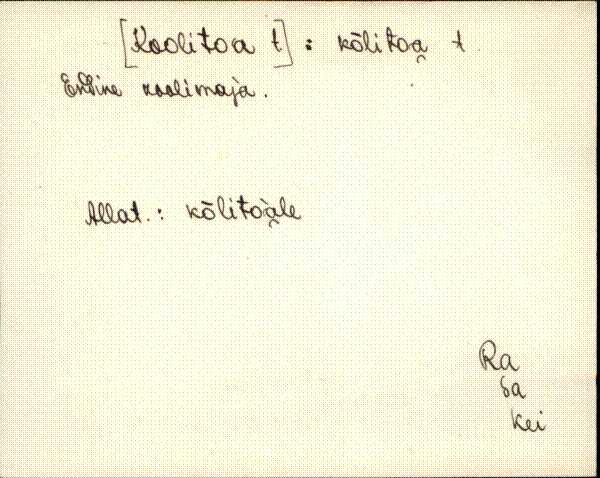 [Koolitoa t] : kõlitoa̯ t
Endine koolimaja.
Allat.: kõlitoa̯le
Ra
Sa
Kei